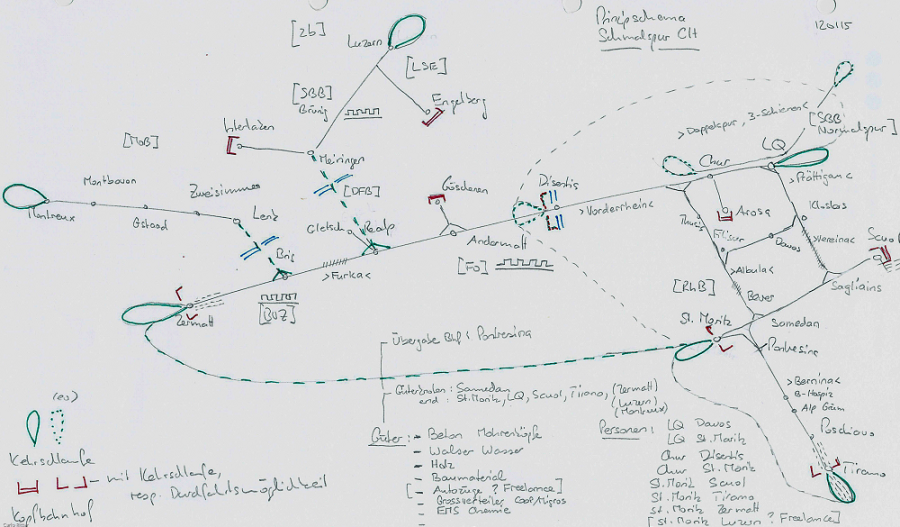 Prinzipschema
Schmalspur CH
120115
[zb]
Luzern
[LSE]
[SBB]
Brünig
Engelberg
Interlaken
[MoB]
Meiringen
[DFB]
Montbovon
Zweisimmen
Lenk
Montreux
Gstaad
Gletsch
Realp
Göschenen
Disentis
>Doppelspur, 3-Schienen<
[SBB
Normalspur]
LQ
Chur
>Prättigau<
>Vorderrhein<
Arosa
Klosters
Thusis
Filisur
Davos
>Vereina<
Scuol
Andermatt
Brig
>Furka<
[FO]
[BVZ]
Zermatt
>Albula<
[RhB]
Bever
Sagliains
St. Moritz
Samedan
Pontresina
>Bernina<
B-Hospiz
Alp Grüm
Poschiavo
Tirano
Übergabe BUf: Pontresina
Güterzentren: Samedan
end: St.Moritz, LQ, Scuol, Tirano, (Zermatt)
(Luzern)
(Montreux)
Güter: - Beton Mohrenköpfe
- Walser Wasser
- Holz
- Baumaterial
[- Autozüge ? Freelance]
- Grossverteiler Coop/Migros
- EMS Chemie
Personen: LQ Davos
LQ St.Moritz
Chur Disentis
Chur St.Moritz
St.Moritz Scuol
St.Moritz Tirano
St.Moritz Zermatt
[St.Moritz Luzern ? Freelance]
(ev)
Kehrschlaufe
- mit Kehrschlaufe,
resp. Durchfahrtsmöglichkeit
Kopfbahnhof